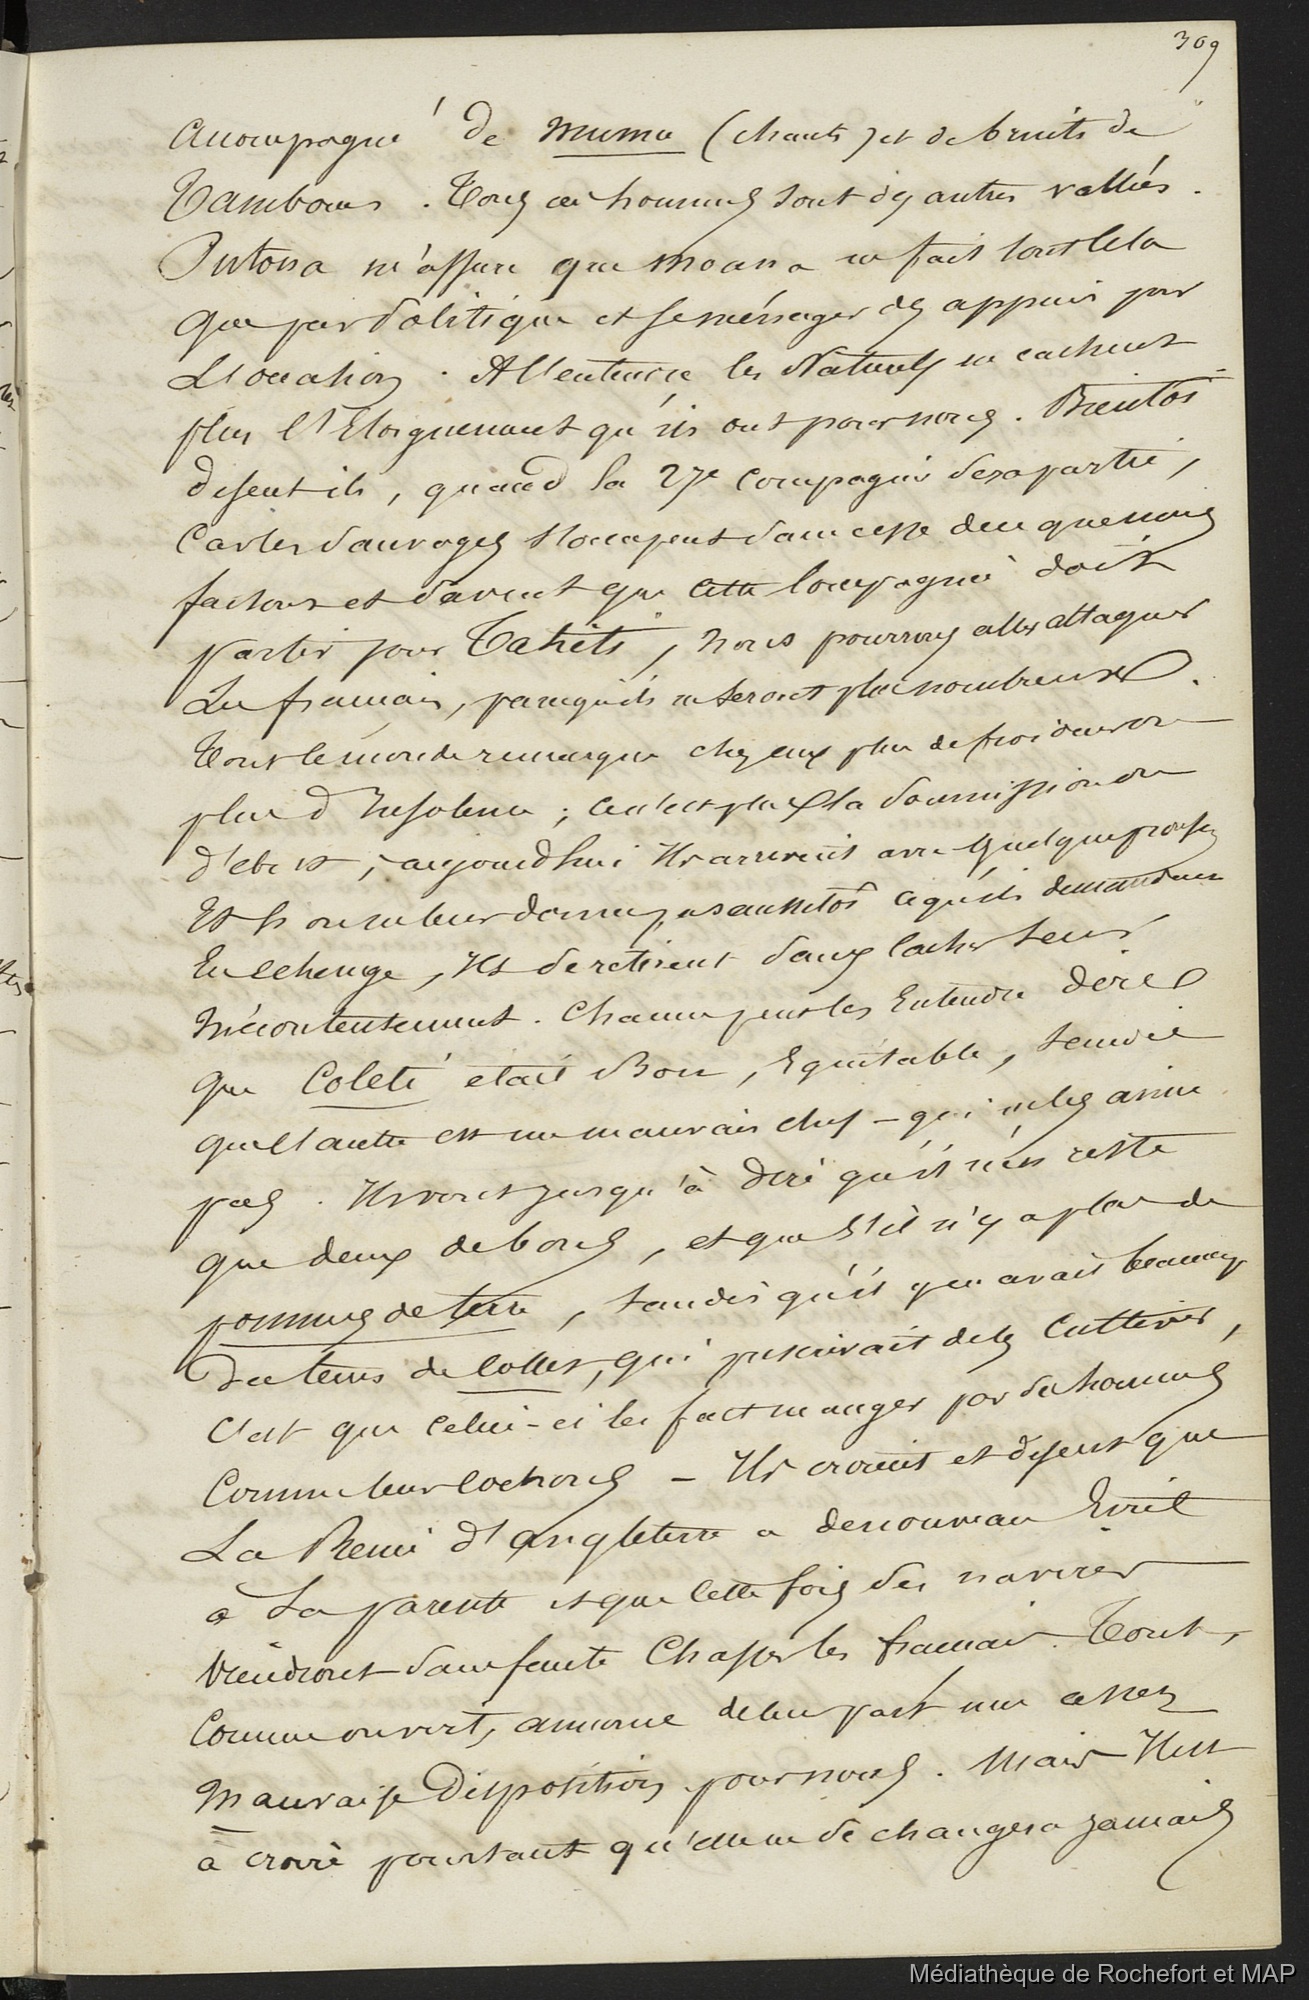 309
accompagné de mumu (chants) et de bruits de
Tambours. Tous ces hommes sont des autres vallées.
m'assure que Moana ne fait tout cela
que par Politique et se ménager des appuis par
L'occasion. A l'entendre les Naturels ne cachent
plus l'Eloignement qu'ils ont pour nous. Bientôt
disent ils, quand la 27e compagnie sera partie,
Car les sauvages s'occupent sans cesse de ce que nous
faisons et savent que cette Compagnie doit
partir pour Tahiti, nous pourrons aller attaquer
Les français, parcequ'ils ne seront plus nombreux.
Tout le monde remarque chez eux plus de froideur ou
plus d'Insolence ; ce n'est plus la soumission ou
; aujourd'hui Ils arrivent avec quelques
Et si on ne leur donne pas aussitôt ce qu'ils demandent
En echange, Ils se retirent sans cacher leur
mécontentement. Chacun peut les Entendre dire
que Coleté était Bon, Equitable, tandis
que l'autre est un mauvais chef - qui ne les aime
pas. Ils vont jusqu'à dire qu'il n'en reste
que deux de bons, et que s'il n'y a plus de
pommes de terre, tandis qu'il y en avait beaucoup
du tems de Collet, qui prescrivait de les Cultiver,
C'est que celui-ci les fait manger par des hommes
Comme leurs cochons - Ils croient et disent que
La Reine d'angleterre a de nouveau Ecrit
à Sa parente et que Cette fois des navires
viendront sans faute Chasser les français. Tout,
Comme on voit, annonce de leur part une assez
mauvaise Disposition pour nous. Mais Il est
à croire pourtant qu'elle ne se changera jamais
Médiathèque de Rochefort et MAP